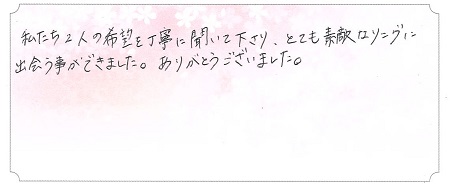 私たち2人の希望を丁寧に聞いて下さり、とても素敵なリングに
出会う事ができました。ありがとうございました。